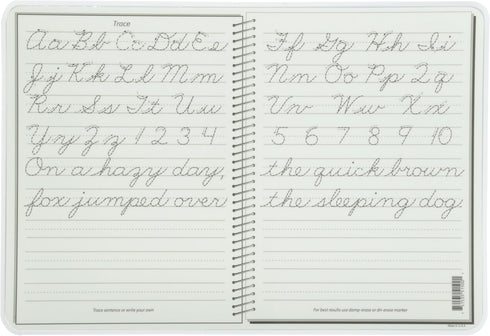 Trace
Aa Bb Cc Dd Ee Ff Gg Hh Ii
Jj Kk Ll Mm Nn Oo Pp Qq
Rr Ss Tt Uu Vv Ww Xx
Yy Zz 1 2 3 4 5 6 7 8 9 10
On a hazy day, the quick brown
fox jumped over the sleeping dog
Trace sentence or write your own
For best results use damp erase or dri erase marker
Made in U.S.A.